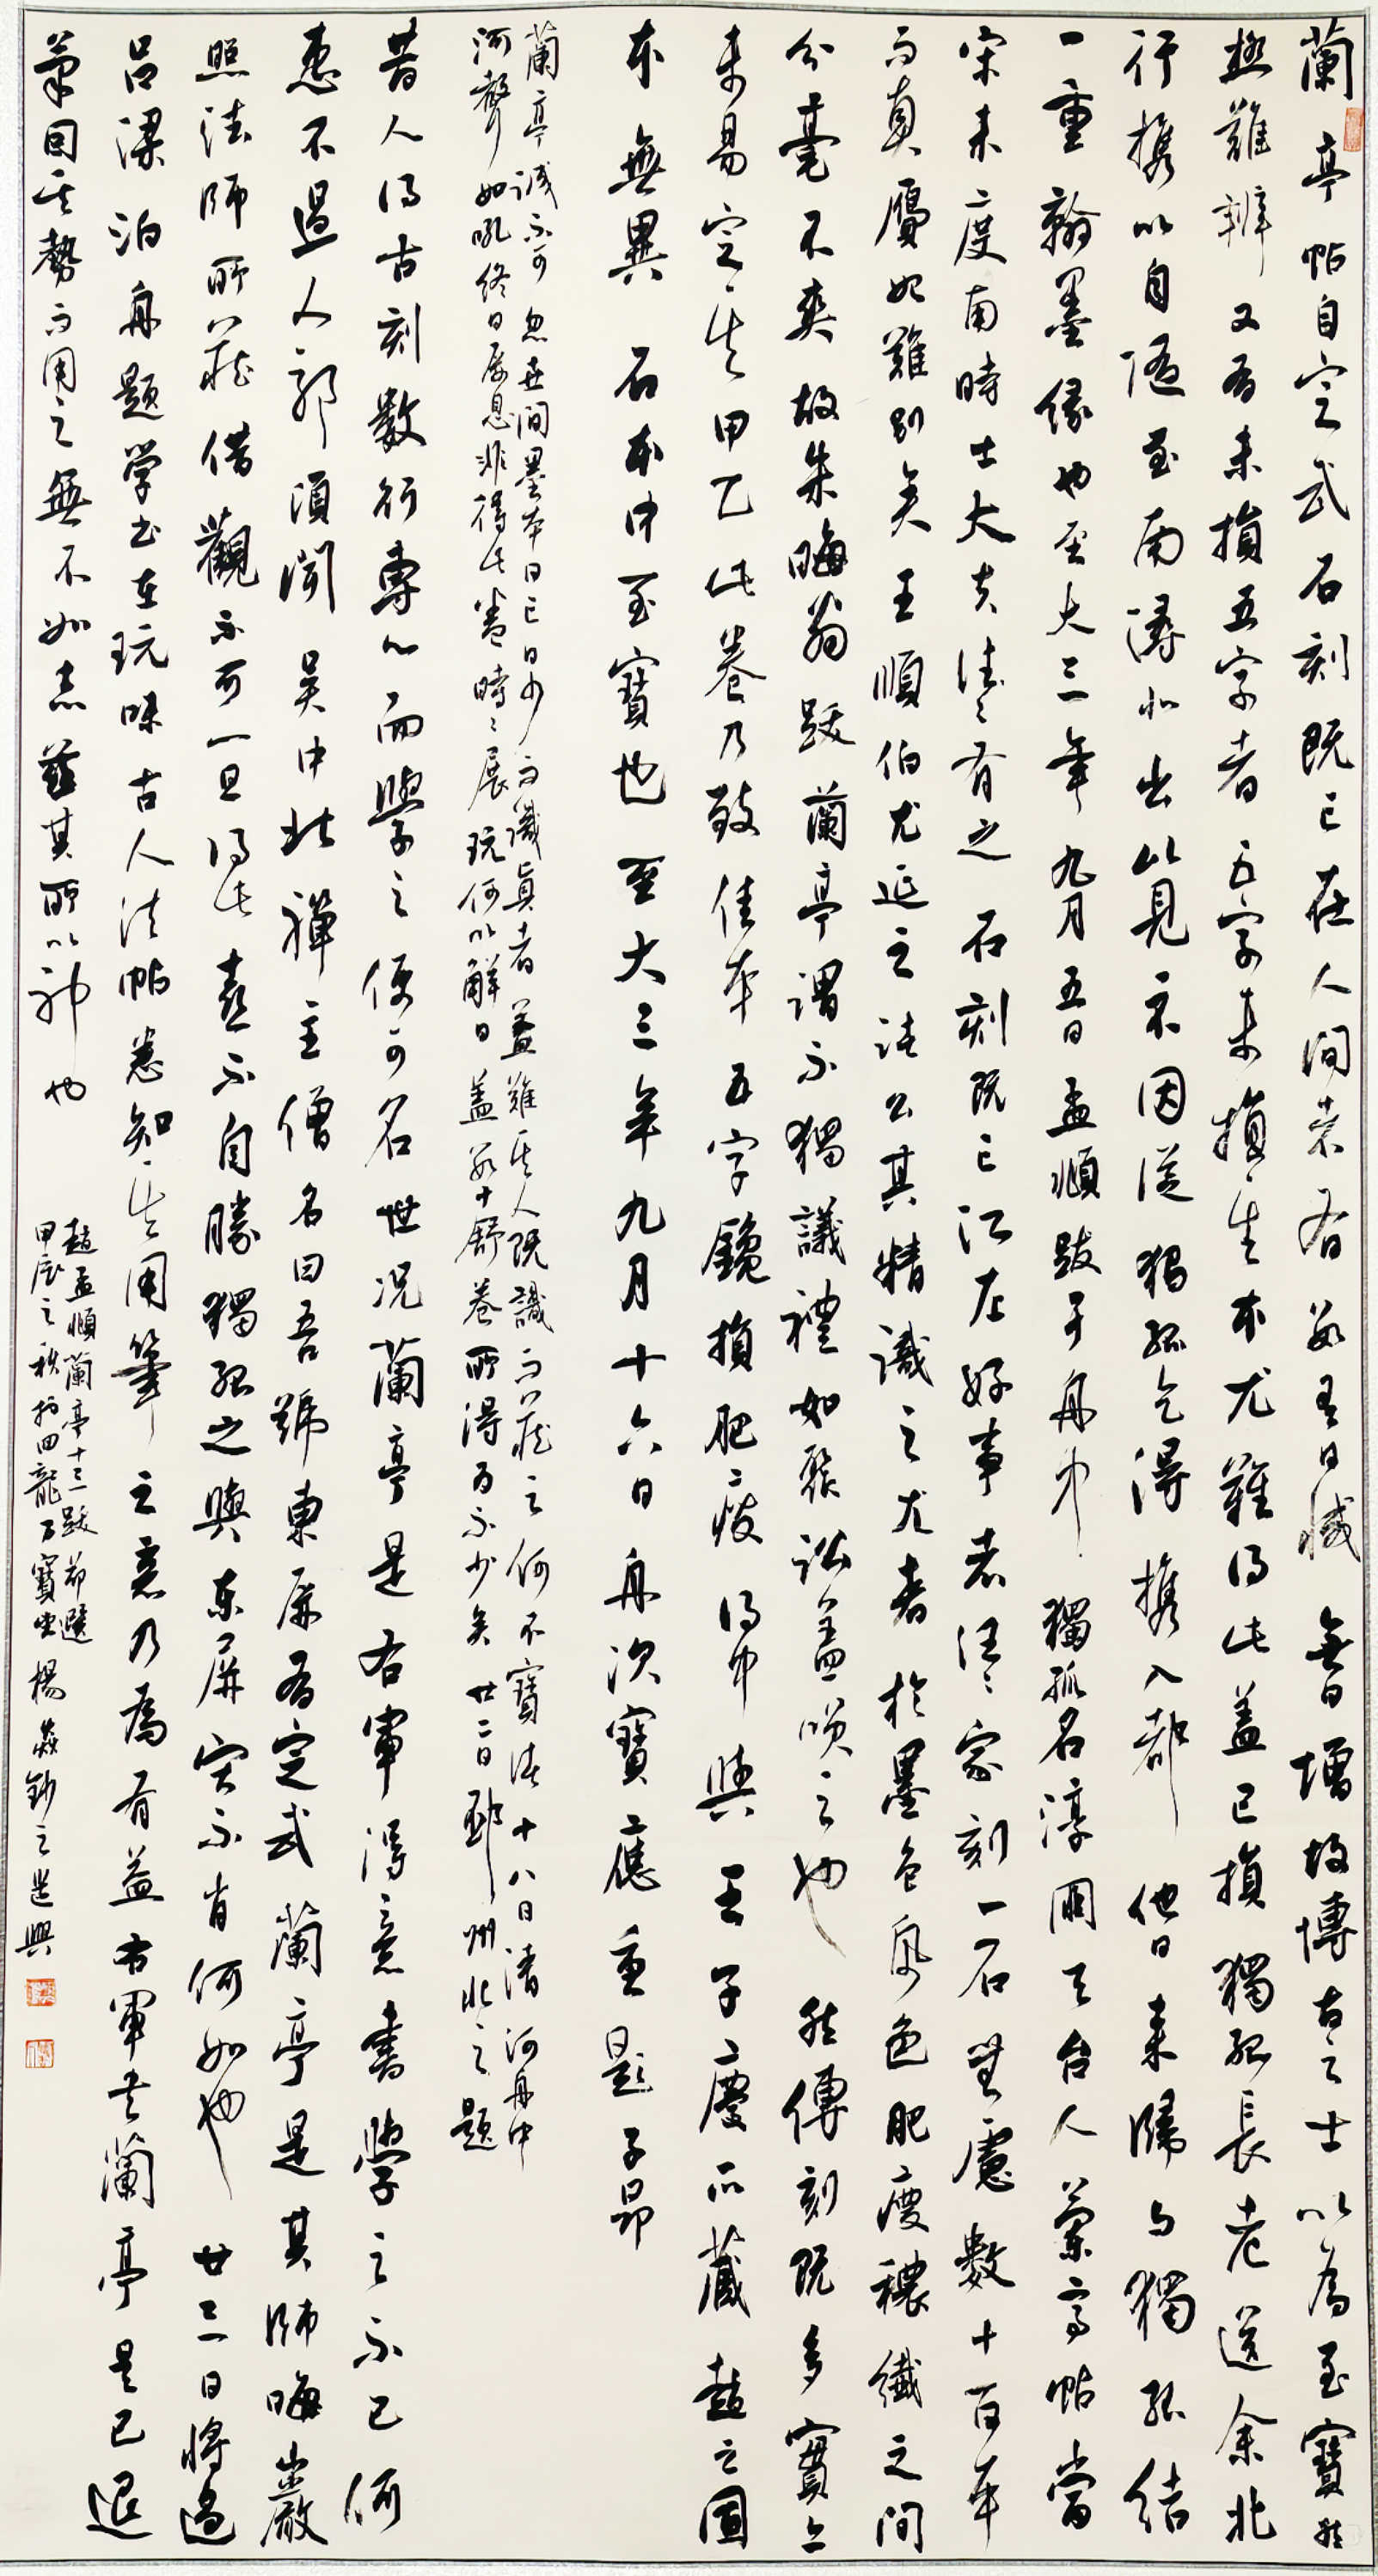 蘭亭帖自定武石刻既亡在人間者有數有日減無日增故博古之士以為至寶然
極難辨又有未損五字者五字未損其本尤難得此蓋已損獨孤長老送余北
行携以自隨至南潯北出以見示因從獨孤乞得携入都他日來歸與獨孤結
一重翰墨緣也至大三年九月五日孟頫跋于舟中獨孤名淳朋天台人蘭亭帖當
宋未度南時士大夫往〻有之石刻既亡江左好事者往〻家刻一石無慮數十百本
而真贗始難別矣王順伯尤延之諸公其精識之尤者於墨色紙色肥瘦穠纖之間
分毫不爽故朱晦翁跋蘭亭謂不獨議禮如聚訟蓋嘆之也然傳刻既多實亦
未易定其甲乙此卷乃致佳本五字鑱損肥瘦得中與王子慶所藏趙子固
本無異石本中至寶也至大三年九月十六日舟次寶應重題子昂
蘭亭誠不可忽世間墨本日亡日少而識真者蓋難其人既識而藏之何不寶諸十八日清河舟中
河聲如吼終日屏息非得此卷時〻展玩何以解日蓋數十舒卷所得為不少矣廿二日邳州北之題
昔人得古刻數行專心而學之便可名世況蘭亭是右軍得意書學之不已何
患不過人耶頃聞吳中北禪主僧名曰吾號東屏有定武蘭亭是其師晦巖
照法師所藏借觀不可一旦得此喜不自勝獨孤之與東屏賢不肖何如也廿三日將過
呂梁泊舟題学书在玩味古人法帖悉知其用筆之意乃為有益右軍書蘭亭是已退
筆因其勢而用之無不如志茲其所以神也
趙孟頫蘭亭十三跋節選
甲辰之秋於四龍百寶堂楊焱鈔之遣興